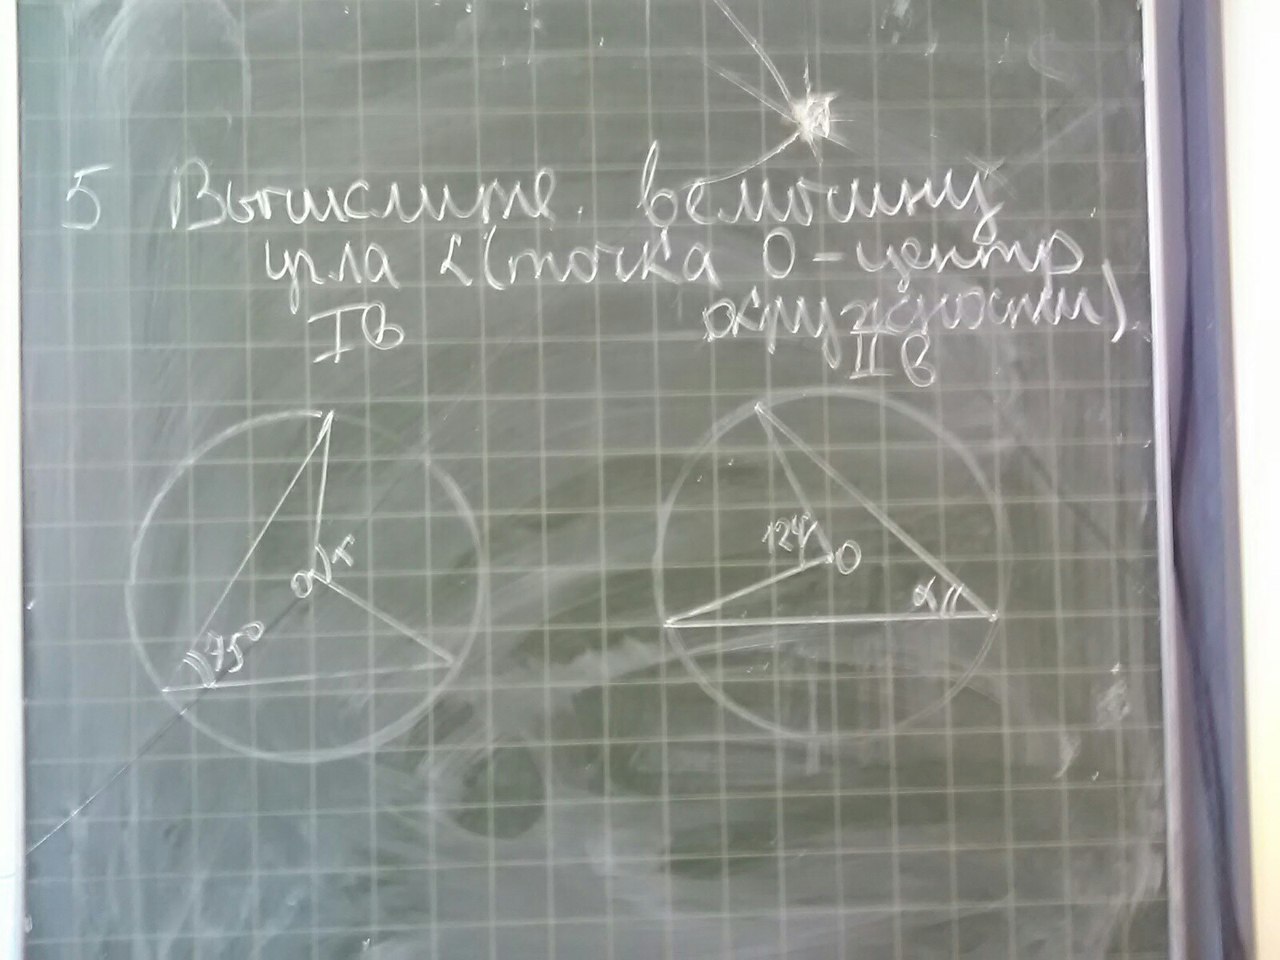 5 Вычислите величину
угла α (точка O - центр
окружности).
I в
II в
O
α
75°
124°
O
α